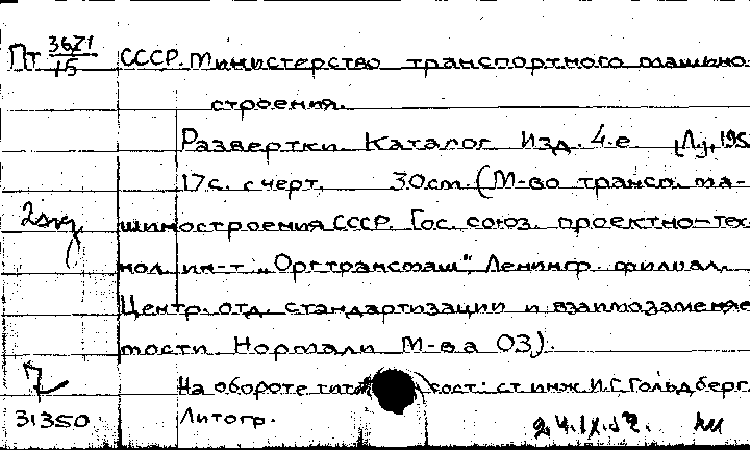 Пт 3671/15 СССР. Министерство транспортного машино-
строения.
Развертки. Каталог. Изд. 4-е [Л], 195
17с. с черт. 30см. (М-во трансп. ма-
2 экз. шиностроения СССР. Гос. союз. проектно-тех-
нол. ин-т "Оргтрансмаш". Ленингр. филиал.
Центр. отд. стандартизации и взаимозаменяе-
мости. Нормали М-ва ОЗ).
На обороте тит сост: ст. инж. И.Г. Гольдберг.
31350 Литогр.